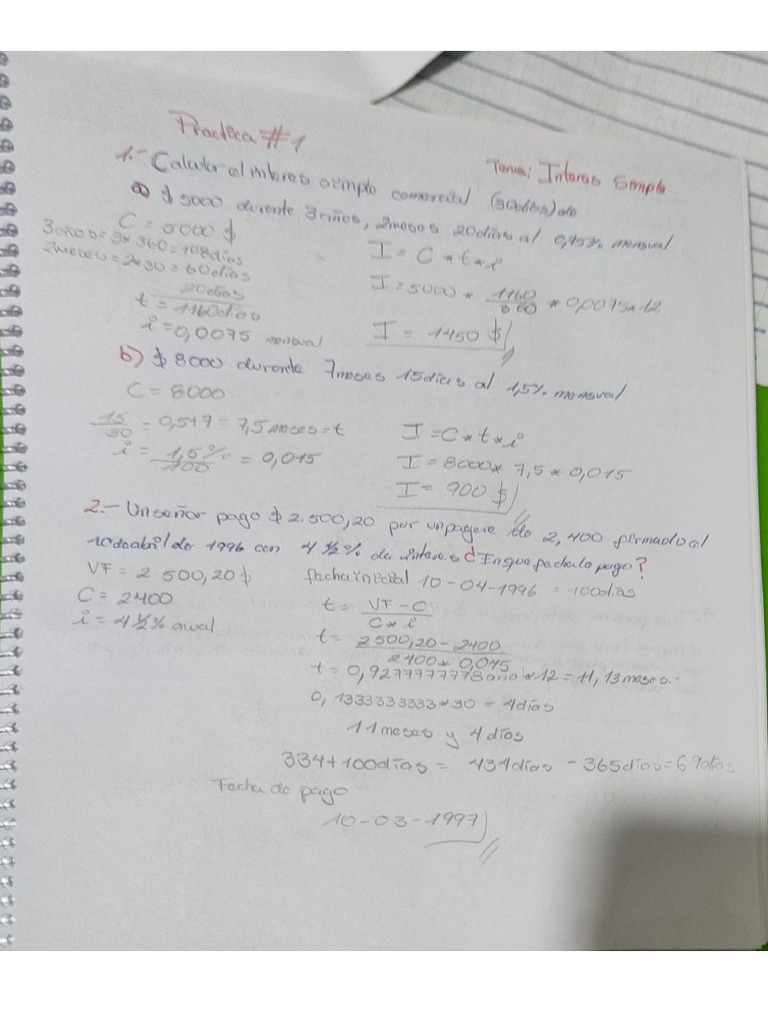 Practica #1
Tema: Interes Simple
1.- Calcular el interes simple comercial (360dias) de
a) $ 5000 durante 3 años, 2 meses 20 dias al 0,75% mensual
C = 5000 $
3 años = 3x 360 = 108dias
2 meses = 2x30 = 60dias
20dias
t = 1160dias
i = 0,0075 mensual
I = C * t * i
I = 5000 * 1160/360 * 0,0075*12
I = 1450 $
b) $ 8000 durante 7 meses 15 dias al 1,5% mensual
C = 8000
15/30 = 0,5+7 = 7,5 meses = t
i = 1,5%/100 = 0,015
I = C * t * i
I = 8000 * 7,5 * 0,015
I = 900 $
2.- Un señor pago $ 2.500,20 por un pagere de 2,400 firmado al
10 de abril de 1996 con 4 ½ % de interes ¿ En que fecha lo pago?
VF = 2 500,20 $
C = 2400
i = 4 ½ % anual
fecha inicial 10-04-1996 = 100dias
t = VF - C / C * i
t = 2 500,20 - 2400 / 2400 * 0,045
t = 0,9277777778 * 12 = 11,13 meses.
0,1333333333*30 = 4 dias
11 meses y 4 dias
334+100dias = 434dias - 365dias = 69dias
Fecha de pago
10-03-1997